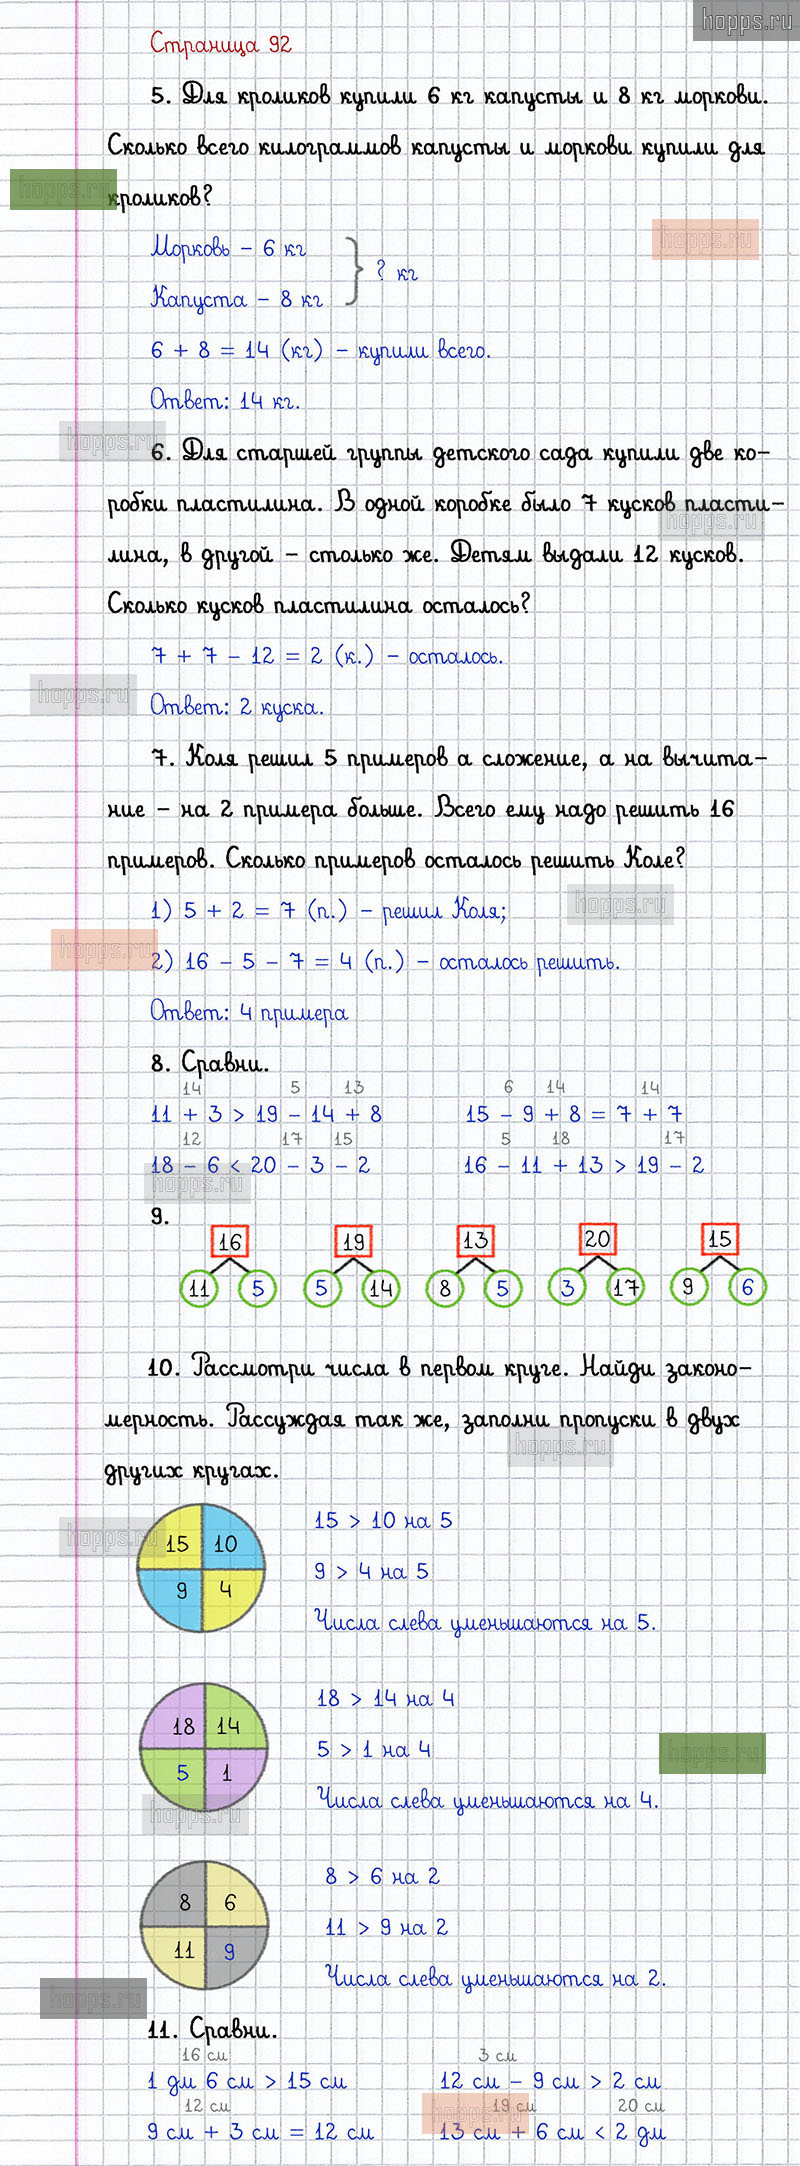 hopps.ru
Страница 92
5. Для кроликов купили 6 кг капусты и 8 кг моркови.
Сколько всего килограммов капусты и моркови купили для
hopps.ru
кроликов?
hopps.ru
Морковь – 6 кг
? кг
Капуста – 8 кг
6 + 8 = 14 (кг) – купили всего.
Ответ: 14 кг.
hopps.ru
6. Для старшей группы детского сада купили две ко-
робки пластилина. В одной коробке было 7 кусков пласти-
hopps.ru
лина, в другой – столько же. Детям выдали 12 кусков.
Сколько кусков пластилина осталось?
7 + 7 – 12 = 2 (к.) – осталось.
hopps.ru
Ответ: 2 куска.
7. Коля решил 5 примеров а сложение, а на вычита-
ние – на 2 примера больше. Всего ему надо решить 16
примеров. Сколько примеров осталось решить Коле?
hopps.ru
1) 5 + 2 = 7 (п.) – решил Коля;
hopps.ru
2) 16 – 5 – 7 = 4 (п.) – осталось решить.
Ответ: 4 примера
8. Сравни.
14 5 13 6 14 14
11 + 3 > 19 – 14 + 8 15 – 9 + 8 = 7 + 7
12 17 15 5 18 17
18 – 6 < 20 – 3 – 2 16 – 11 + 13 > 19 – 2
hopps.ru
9.
16 19 13 20 15
11 5 5 14 8 5 3 17 9 6
10. Рассмотри числа в первом круге. Найди законо-
мерность. Рассуждая так же, заполни пропуски в двух
hopps.ru
других кругах.
15 > 10 на 5
hopps.ru
15 10
9 > 4 на 5
9 4
Числа слева уменьшаются на 5.
18 > 14 на 4
18 14
5 > 1 на 4
hopps.ru
5 1
Числа слева уменьшаются на 4.
hopps.ru
8 > 6 на 2
8 6
11 > 9 на 2
11 9
Числа слева уменьшаются на 2.
hopps.ru
11. Сравни.
16 см 3 см
1 дм 6 см > 15 см 12 см – 9 см > 2 см
12 см 19 см 20 см
hopps.ru
9 см + 3 см = 12 см 13 см + 6 см < 2 дм